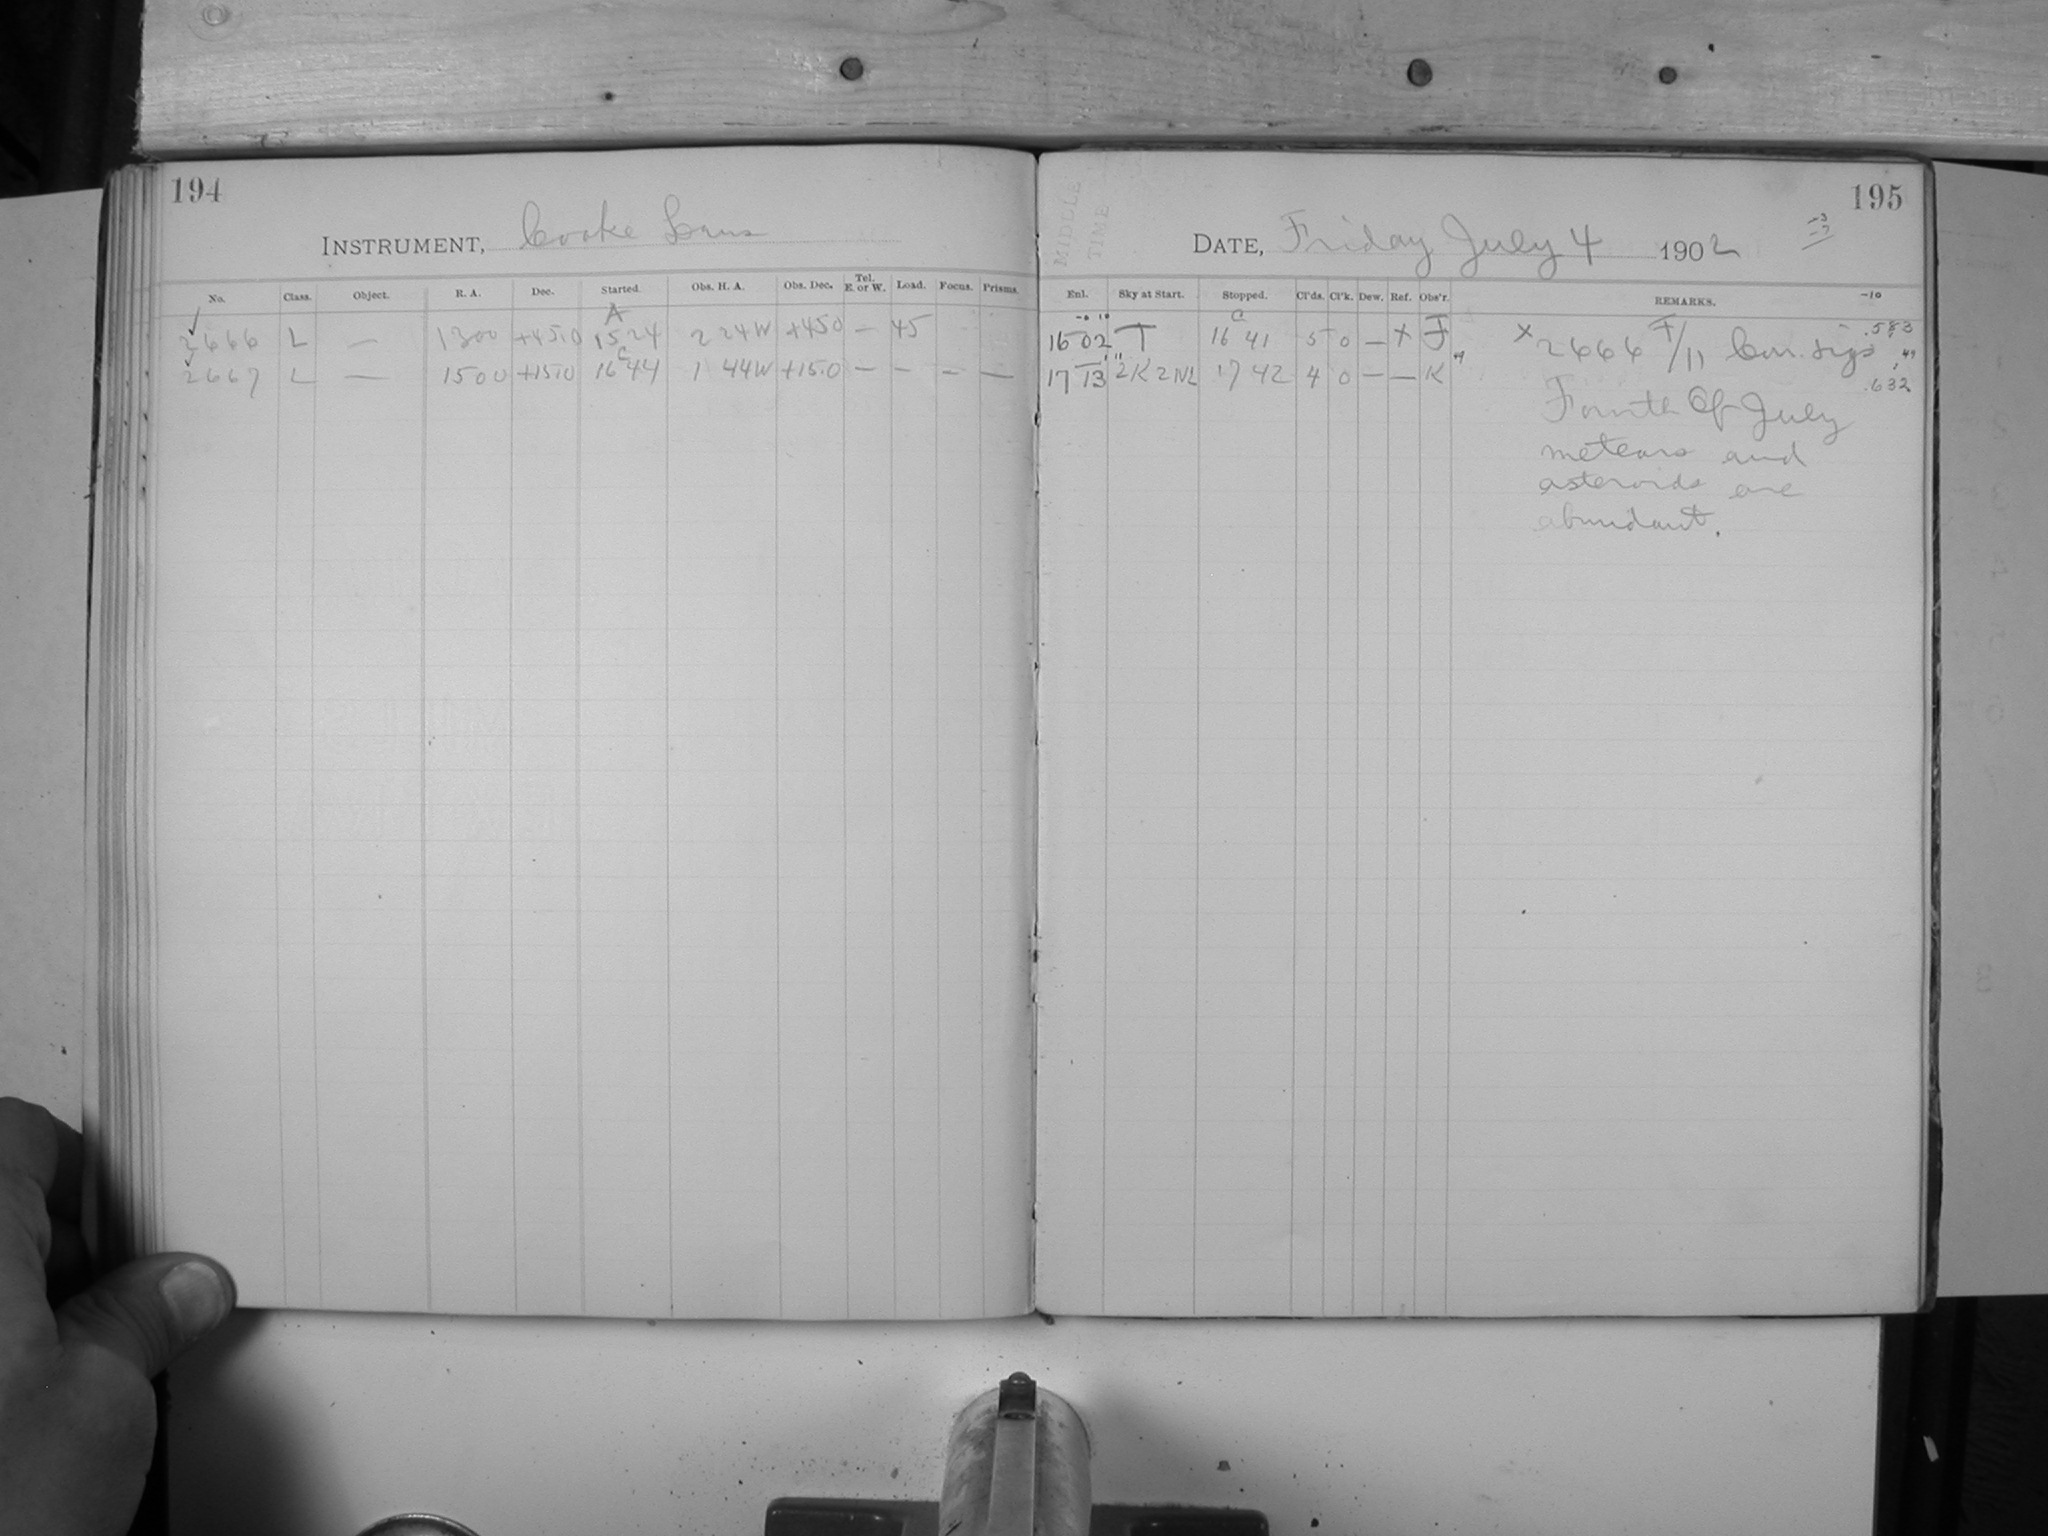 194
INSTRUMENT, Cooke Lens
No. Class. Object. R. A. Dec. Started. Obs. H. A. Obs. Dec. Tel. E. or W. Load. Focus. Prisms.
A
2666 L — 1300 +45.0 15 24 2 24W +45.0 — 45
C
2667 L — 1500 +15.0 16 44 1 44W +15.0 — — — —
195
MIDDLE TIME
DATE, Friday July 4 1902
Enl. Sky at Start. Stopped. Cl'ds. Cl'k. Dew. Ref. Obs'r. REMARKS. -10
C
16 02 T 16 41 5 0 — X F X 2666 F/11 Con. sigs .583
49
17 13 2K 2NL 17 42 4 0 — — K .632
Fourth Of July
meteors and
asteroids are
abundant.